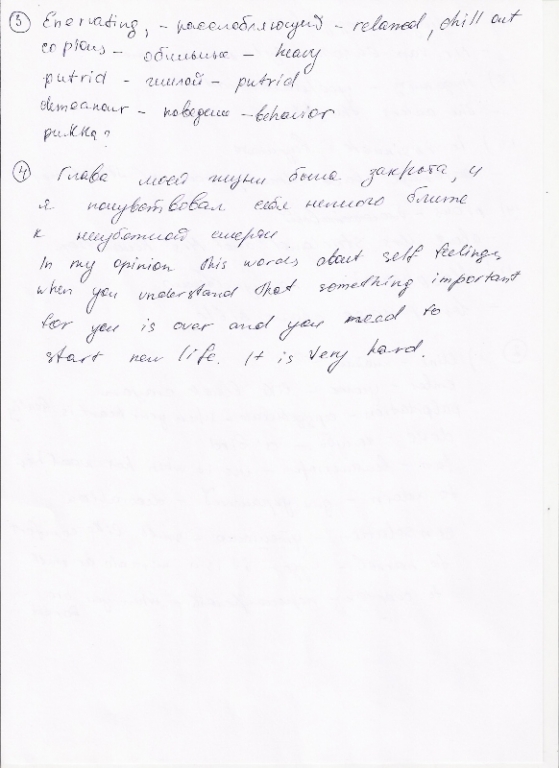 ③ Enervating, - расслабляющий - relaxed, chill out
copious - обильные - heavy
putrid - гнилой - putrid
demeanour - поведение - behavior
pukka?
④ Глава моей жизни была закрыта, и
я почувствовал себя немного ближе
к неизбежной смерти.
In my opinion this words about self feelings,
when you understand that something important
for you is over and you need to
start new life. It is very hard.